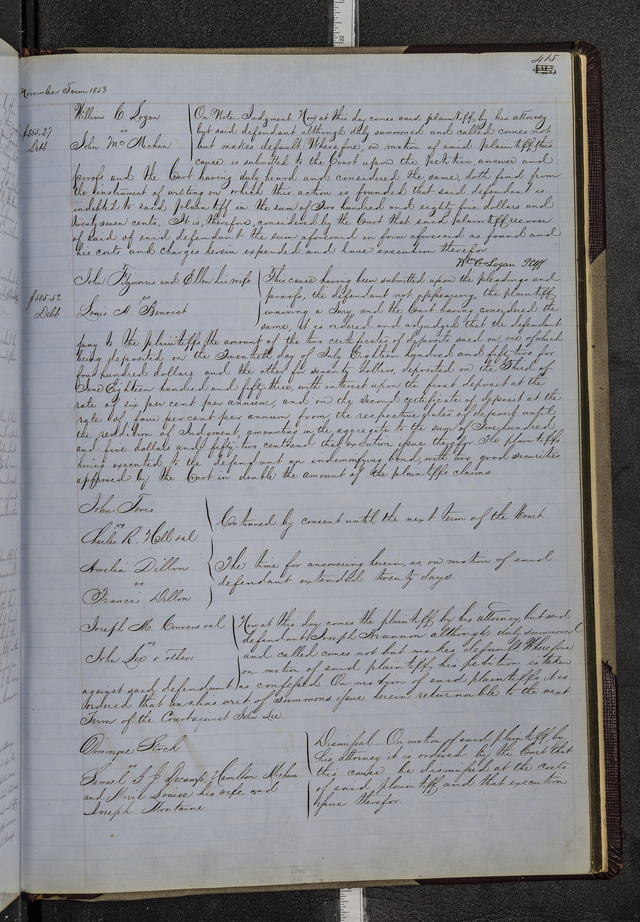 415
November Term 1853
William C Logan
vs
John McMehan
$285.27
Debt
On Note. Judgment Now at this day comes said plaintiff, by his attorney
but said defendant although duly summoned and called comes not
but makes default Wherefore, on motion of said plaintiff, this
cause is submitted to the Court upon the Petition, answer and
proofs and the Court having duly heard and considered the same, doth find from
the instrument of writing on which this action is founded that said defendant is
indebted to said plaintiff in the sum of Two hundred and eighty five dollars and
twenty seven cents. It is, therefore, considered by the Court that said plaintiff recover
of said defendant the sum aforesaid in form aforesaid as found and
his costs and charges herein expended and have execution therefor
Wm C Logan Plff
John Fitzmorris and Ellen his wife
vs
Louis A Benoist
$505.52
Debt
This cause having been submitted upon the pleadings and
proofs, the defendant not appearing, the plaintiff
waiving a Jury, and the Court having considered the
same, it is ordered and adjudged that the defendant
pay to the plaintiffs the amount of the two certificates of deposite sued on, one of which
being deposited on the Twentieth day of July Eighteen hundred and fifty two for
four hundred dollars and the other on seventy dollars, deposited on the Third of
June Eighteen hundred and fifty three, with interest upon the first deposit at the
rate of six per cent per annum, and on the second certificate of deposit at the
rate of four per cent per annum from the respective dates of deposit until
the rendition of Judgment, amounting in the aggregate to the sum of Five hundred
and five dollars and fifty two cents and that execution issue therefor The plaintiffs
having executed to the defendant an indemnifying bond, with two good securities
approved by the Court in double the amount of the plaintiffs claims.
John
vs
Charles R. Hall et al
Continued by consent until the next term of the Court
Amelia Dillon
vs
Francis Dillon
The time for answering herein, is, on motion of said
defendant extended twenty days.
Joseph M. et al
vs
John Lee & others
Now at this day comes the plaintiff by his attorney, but said
defendant Joseph Brannon although duly summoned
and called comes not but makes default Wherefore
on motion of said plaintiff, his petition is taken
against said defendant as confessed. On motion of said plaintiffs it is
ordered that an alias writ of summons issue herein returnable to the next
Term of the Court against John Lee
Dominique Stock
vs
Samuel & J. Decamp, Hamilton McHan
and Marie Louise his wife and
Joseph Montaine
Dismissal On motion of said plaintiff by
his attorney it is ordered by the Court that
this cause be dismissed at the costs
of said plaintiff and that execution
issue therefor.